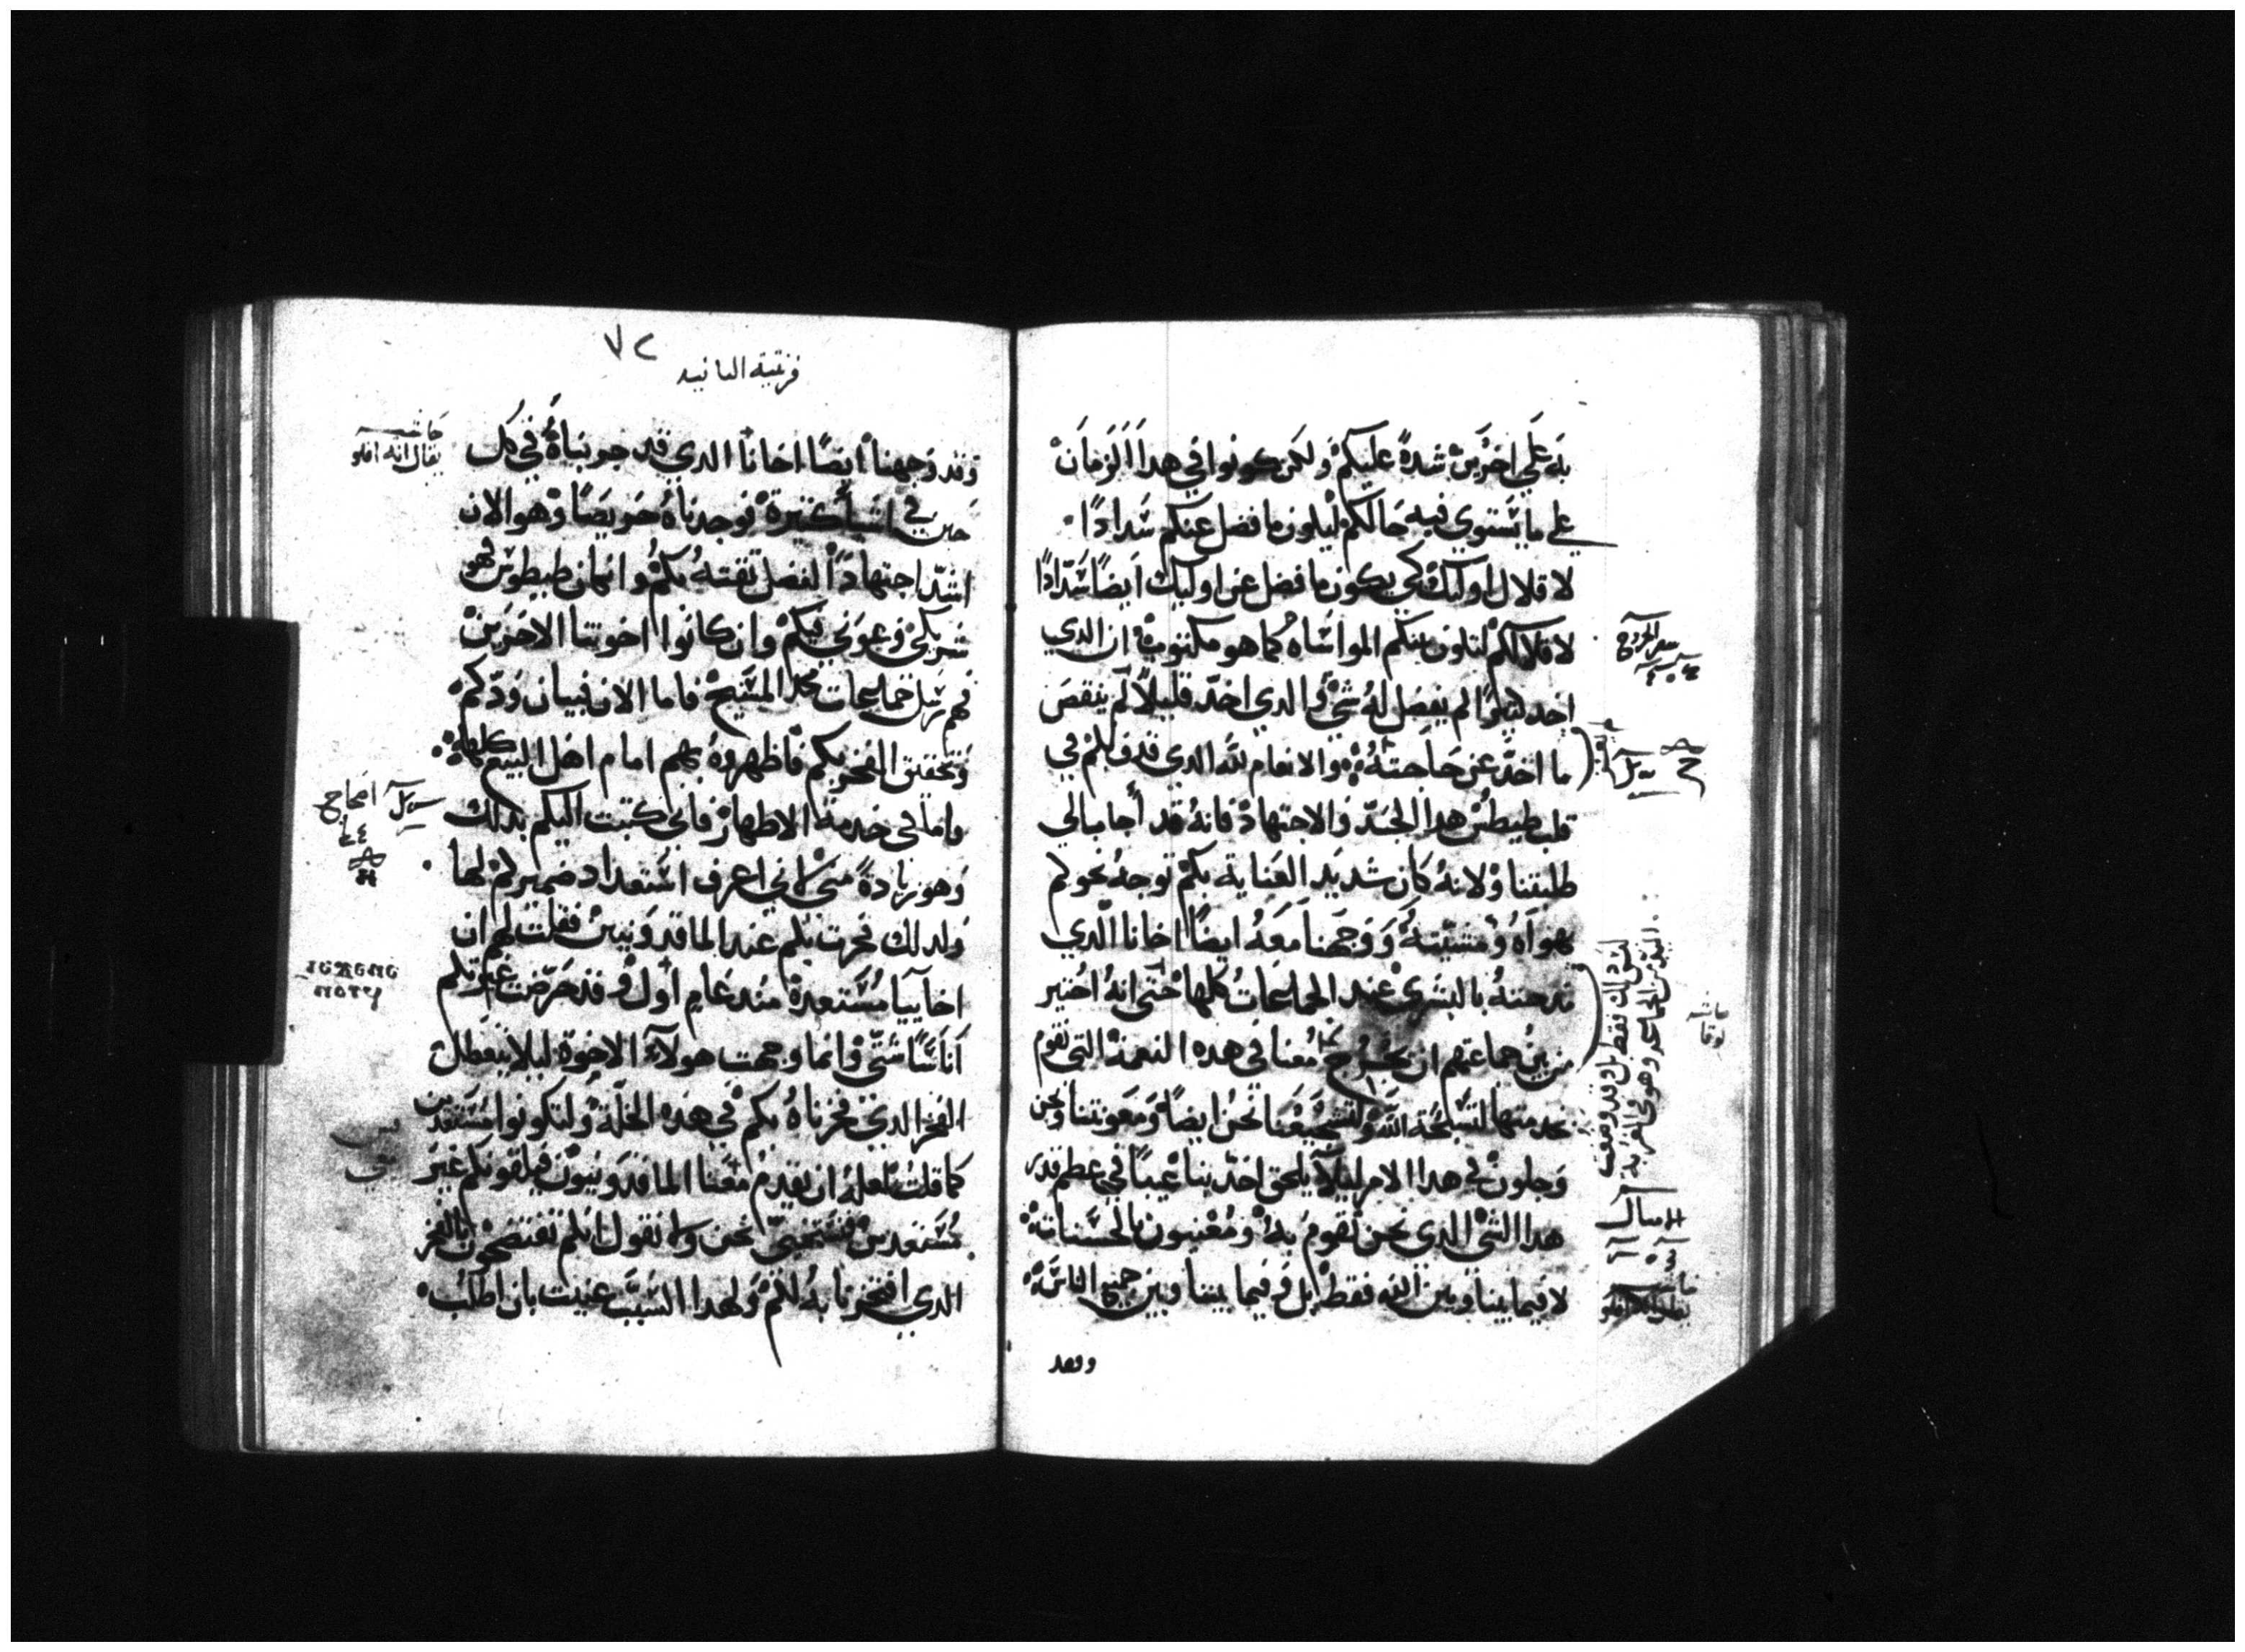 به علي اخرين شدة عليكم ولكن كونوا في هدا الزمان
علي ما يستوي فيه حالكم ليكون ما فضل عنكم سدادًا
لاقلال اوليك كي يكون ما فضل عن اوليك ايضًا سدادًا
لاقلالكم لتكون بينكم المواساه كما هو مكتوب ان الدي
اخد كتيرًا لم يفضل له شي والدي اخد قليلاً لم ينقص
ما اخد عن حاجته والانعام لله الدي قدف لكم في
قلب طيطس هدا الجد والاجتهاد فانه قد أجابـ الي
طلبتنا ولانه كان شديد العناية بكم توجه نحوكم
بهواه ومشيته ووجهنا معه ايضًا اخانا الدي
مدحته بالبشري عند الجماعات كلها حتي انه اختير
من بين جماعتهم ان يخرج معنا في هده النعمة التي نقوم
بخدمتها لتسبحة الله ولتشجيعنا نحن ايضًا ومعونتنا ونحن
وجلون في هدا الامر ليلا يلحق احد بنا عيبًا في عظم قدر
هدا الشي الدي نحن نقوم به ومعنيون بالحسنات
لا فيما بيننا وبين الله فقط بل وفيما بيننا وبين جميع الناس
ووجد
سفر الخروج
حاشية
ليس دلك فقط بل وقد وضعت
٧٢
قرنتية التانيه
وقد وجهنا ايضًا اخانا الدي قد جربناه في كل
حين في اشيا كتيرة فوجدناه حريصًا وهو الان
اشد اجتهادًا لفضل تقته بكم وان كان طيطوس فهو
شريكي وعوني فيكم وان كانوا اخوتنا الاخرين
فهم رسل جماعات مجد المسيح فاما الان فبيان ودكم
وتحقيق الفخر بكم فاظهروه بهم امام اهل البيع كلها
واما في خدمة الاطهار فاني كتبت اليكم بدلك
وهو زيادة مني لاني اعرف استعداد ضميركم لها
ولدلك فخرت بكم عند الماقدونيين فقلت لهم ان
اخاييا مستعدة مند عام اول وقد حرضت غيرتكم
اناسًا شتي وانما وجهت هولاء الاخوة ليلا يتعطل
الفخر الدي فخرناه بكم في هده الخلة ولتكونوا مستعدين
كما قلت لعله ان يقدم معنا الماقدونيون فيلقونكم غير
مستعدين فنستحيي نحن ولا نقول انكم تفتضحون بالفخر
الدي افتخرنا به لكم ولهدا السبب عنيت بان اطلب
حاشية
يقال انه افلو
اصحاح